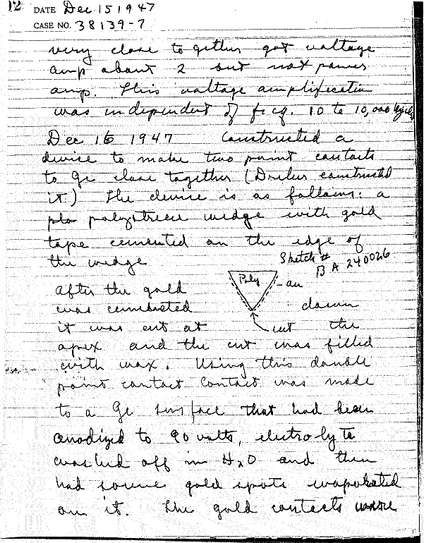 12 DATE Dec 15 1947
CASE NO. 38139-7
very close together got voltage
amp about 2 but not power
amp. This voltage amplification
was independent of freq. 10 to 10,000 cycles
Dec 16 1947 Constructed a
device to make two point contacts
to Ge close together (Dreher constructed
it) The device is as follows: a
polystyrene wedge with gold
tape cemented on the edge of
the wedge
Sketch #
BA 240026
Poly
au
After the gold
was cemented down
it was cut at the
cut
apex and the cut was filled
with wax. Using this double
point contact contact was made
to a Ge surface that had been
anodized to 90 volts, electrolyte
washed off in H2O and then
had some gold spots evaporated
on it. The gold contacts were